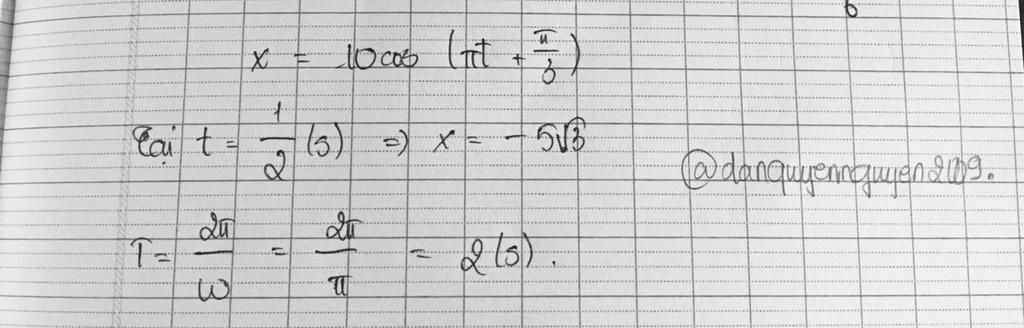 x = 10cos (πt + π/3)
Tại t = 1/2 (s) => x = -5√3
@danquyennguyen2109.
T = 2π/ω = 2π/π = 2 (s).